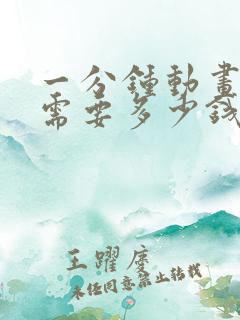 一分鍾動畫
需要多少錢
王躍度
未經同意禁止轉載